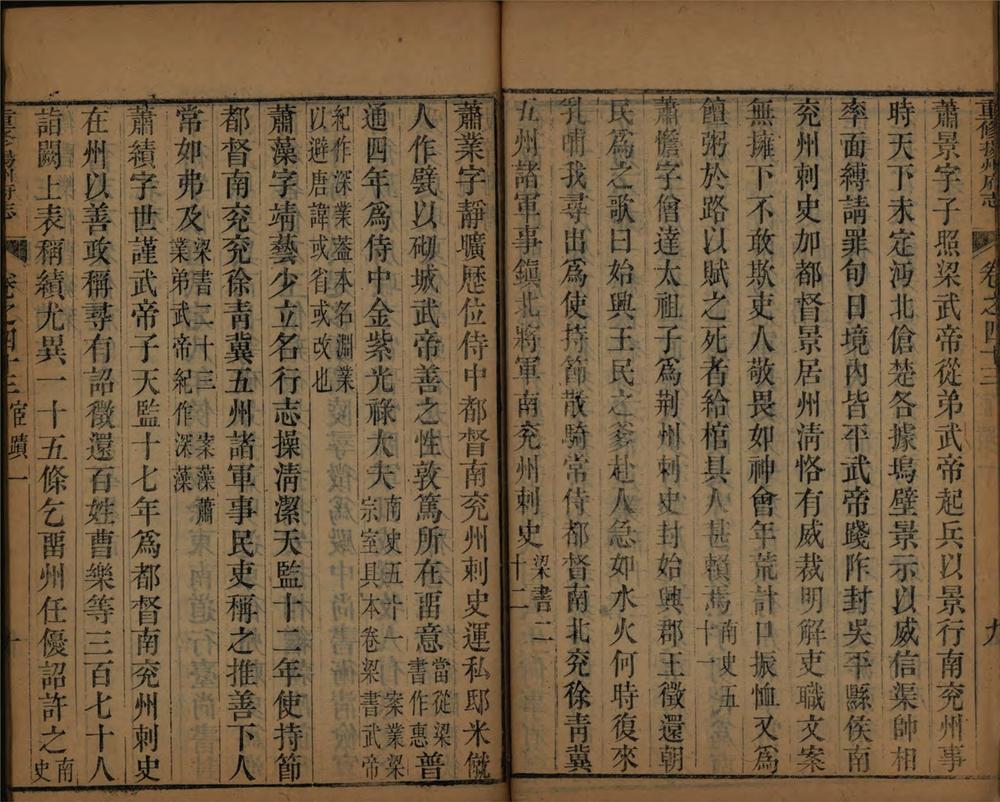 重修揚州府志 卷之四十三 九
蕭景字子照梁武帝從弟武帝起兵以景行南兖州事
時天下未定沔北傖楚各據塢壁景示以威信渠帥相
率面縛請罪旬日境內皆平武帝踐阼封吳平縣侯南
兖州刺史加都督景居州淸恪有威裁明解吏職文案
無擁下不敢欺吏人敬畏如神會年荒計口振恤又爲
饘粥於路以賦之死者給棺具人甚賴焉南史五十一
蕭憺字僧達太祖子爲荆州刺史封始興郡王徵還朝
民爲之歌曰始興王民之爹赴人急如水火何時復來
乳哺我尋出爲使持節散騎常侍都督南北兖徐靑冀
五州諸軍事鎭北將軍南兖州刺史梁書二十二
蕭業字靜曠歷位侍中都督南兖州刺史運私邸米僦
人作甓以砌城武帝善之性敦篤所在畱意當從梁書作惠普
通四年爲侍中金紫光祿大夫南史五十一案業梁宗室具本卷梁書武帝
紀作深業蓋本名淵業以避唐諱或省或改也
蕭藻字靖藝少立名行志操淸潔天監十二年使持節
都督南兖兖徐靑冀五州諸軍事民吏稱之推善下人
常如弗及梁書二十三案藻蕭業弟武帝紀作深藻
蕭績字世謹武帝子天監十七年爲都督南兖州刺史
在州以善政稱尋有詔徵還百姓曹樂等三百七十人
詣闕上表稱績尤異一十五條乞畱州任優詔許之南史
重修揚州府志 卷之四十三 宦蹟一 十